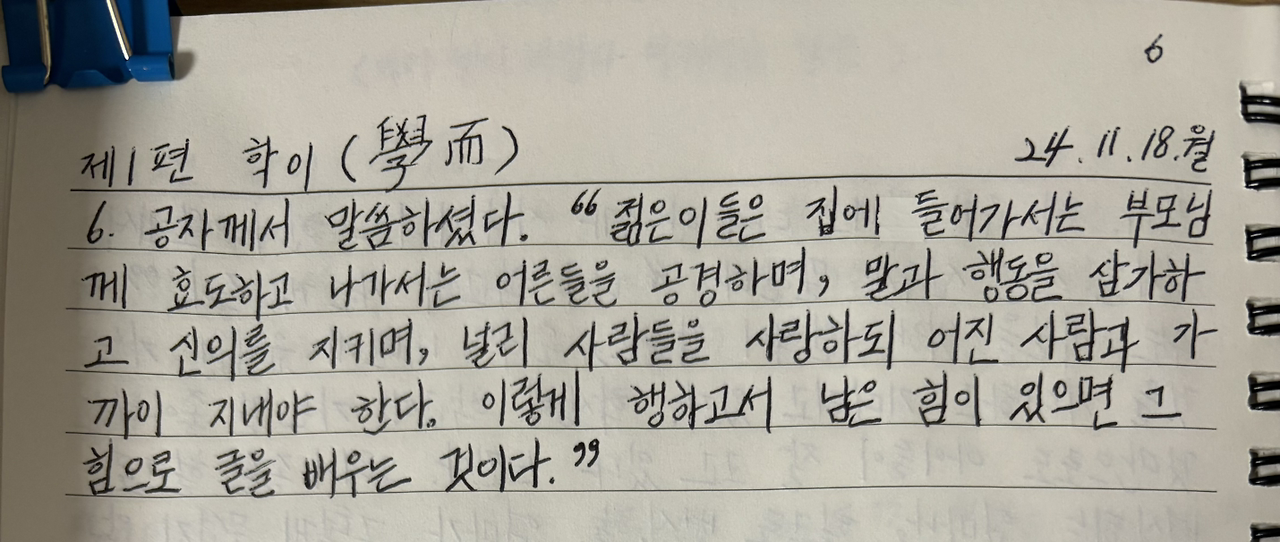 6
제1편 학이 (學而) 24.11.18.월
6. 공자께서 말씀하셨다. “젊은이들은 집에 들어가서는 부모님
께 효도하고 나가서는 어른들을 공경하며, 말과 행동을 삼가하
고 신의를 지키며, 널리 사람들을 사랑하되 어진 사람과 가
까이 지내야 한다. 이렇게 행하고서 남은 힘이 있으면 그
힘으로 글을 배우는 것이다.”